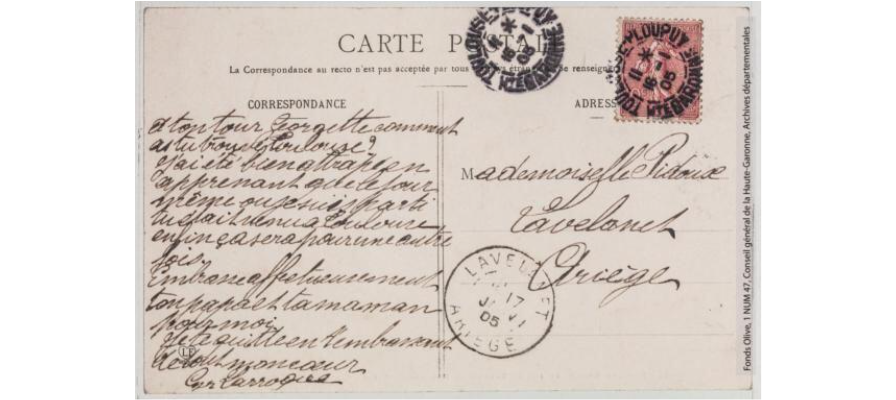 CARTE POSTALE
La Correspondance au recto n'est pas acceptée par tous
se renseigner
CORRESPONDANCE
ADRESSE
a ton tour Georgette comment
as tu trouvé Toulouse?
J'ai été bien attrapé en
apprenant que le jour
même ou je suis parti
tu étais venu a Toulouse
enfin ça sera pour une autre
fois,
Embrasse affectueusement
ton papa et ta maman
pour moi
Je te quitte en t'embrassant
de tout mon cœur
Mademoiselle Pidoux
Lavelanet
Ariège
LAVELANET
17
05
ARIEGE
TOULOUSE
HTE GARONNE
05
TOULOUSE
HTE GARONNE
05
Fonds Olive, 1 NUM 47, Conseil général de la Haute-Garonne, Archives départementales